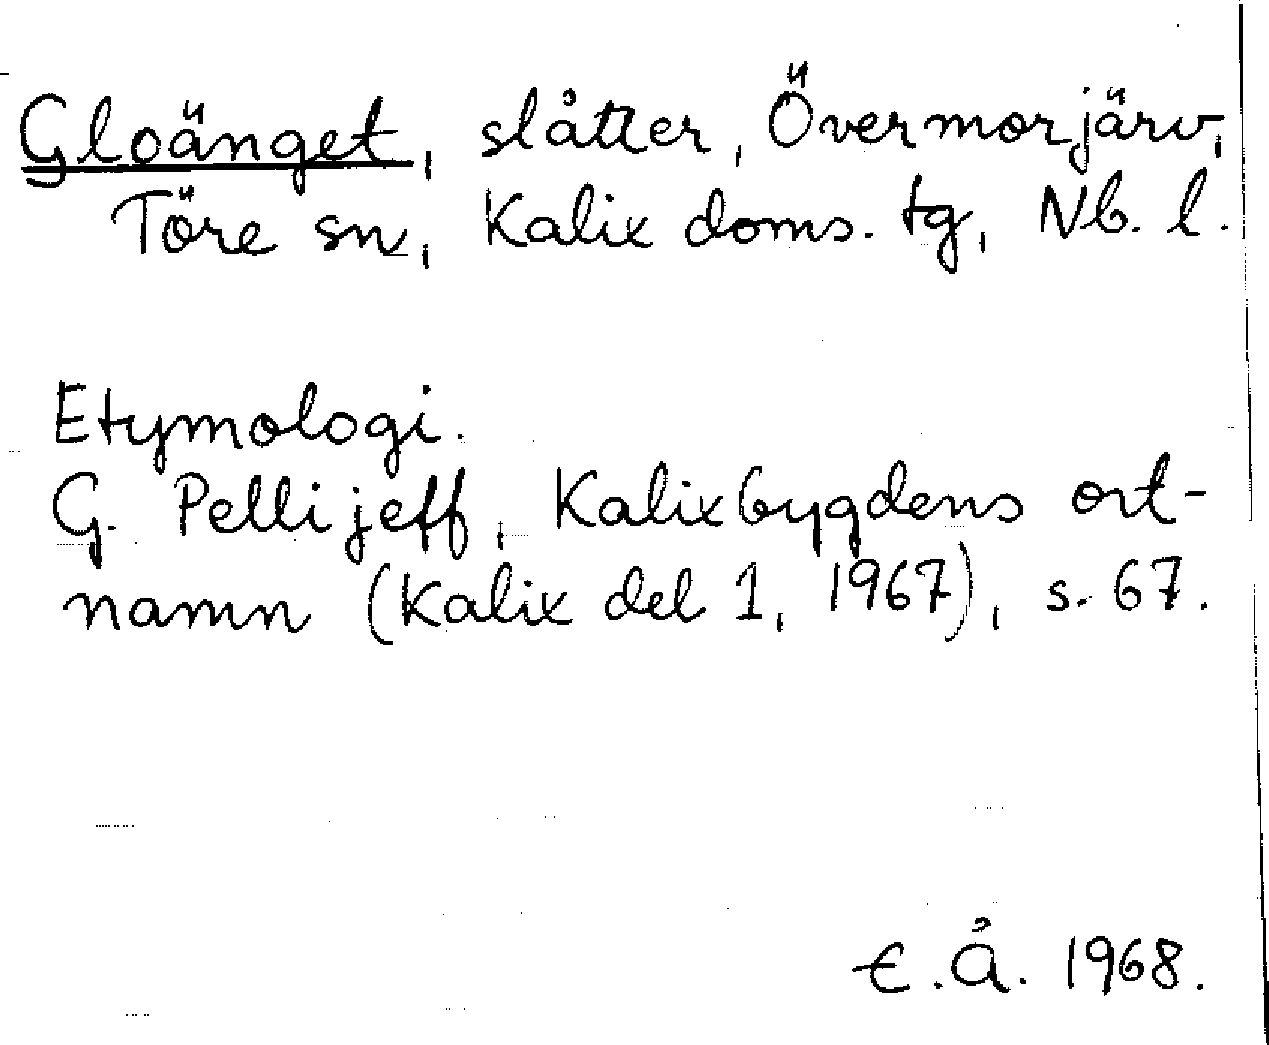 Gloänget, slåtter, Övermorjärv,
Töre sn, Kalix doms. tg, Nb. l.
Etymologi.
G. Pellijeff, Kalixbygdens ort-
namn (Kalix del 1, 1967), s. 67.
E.Å. 1968.